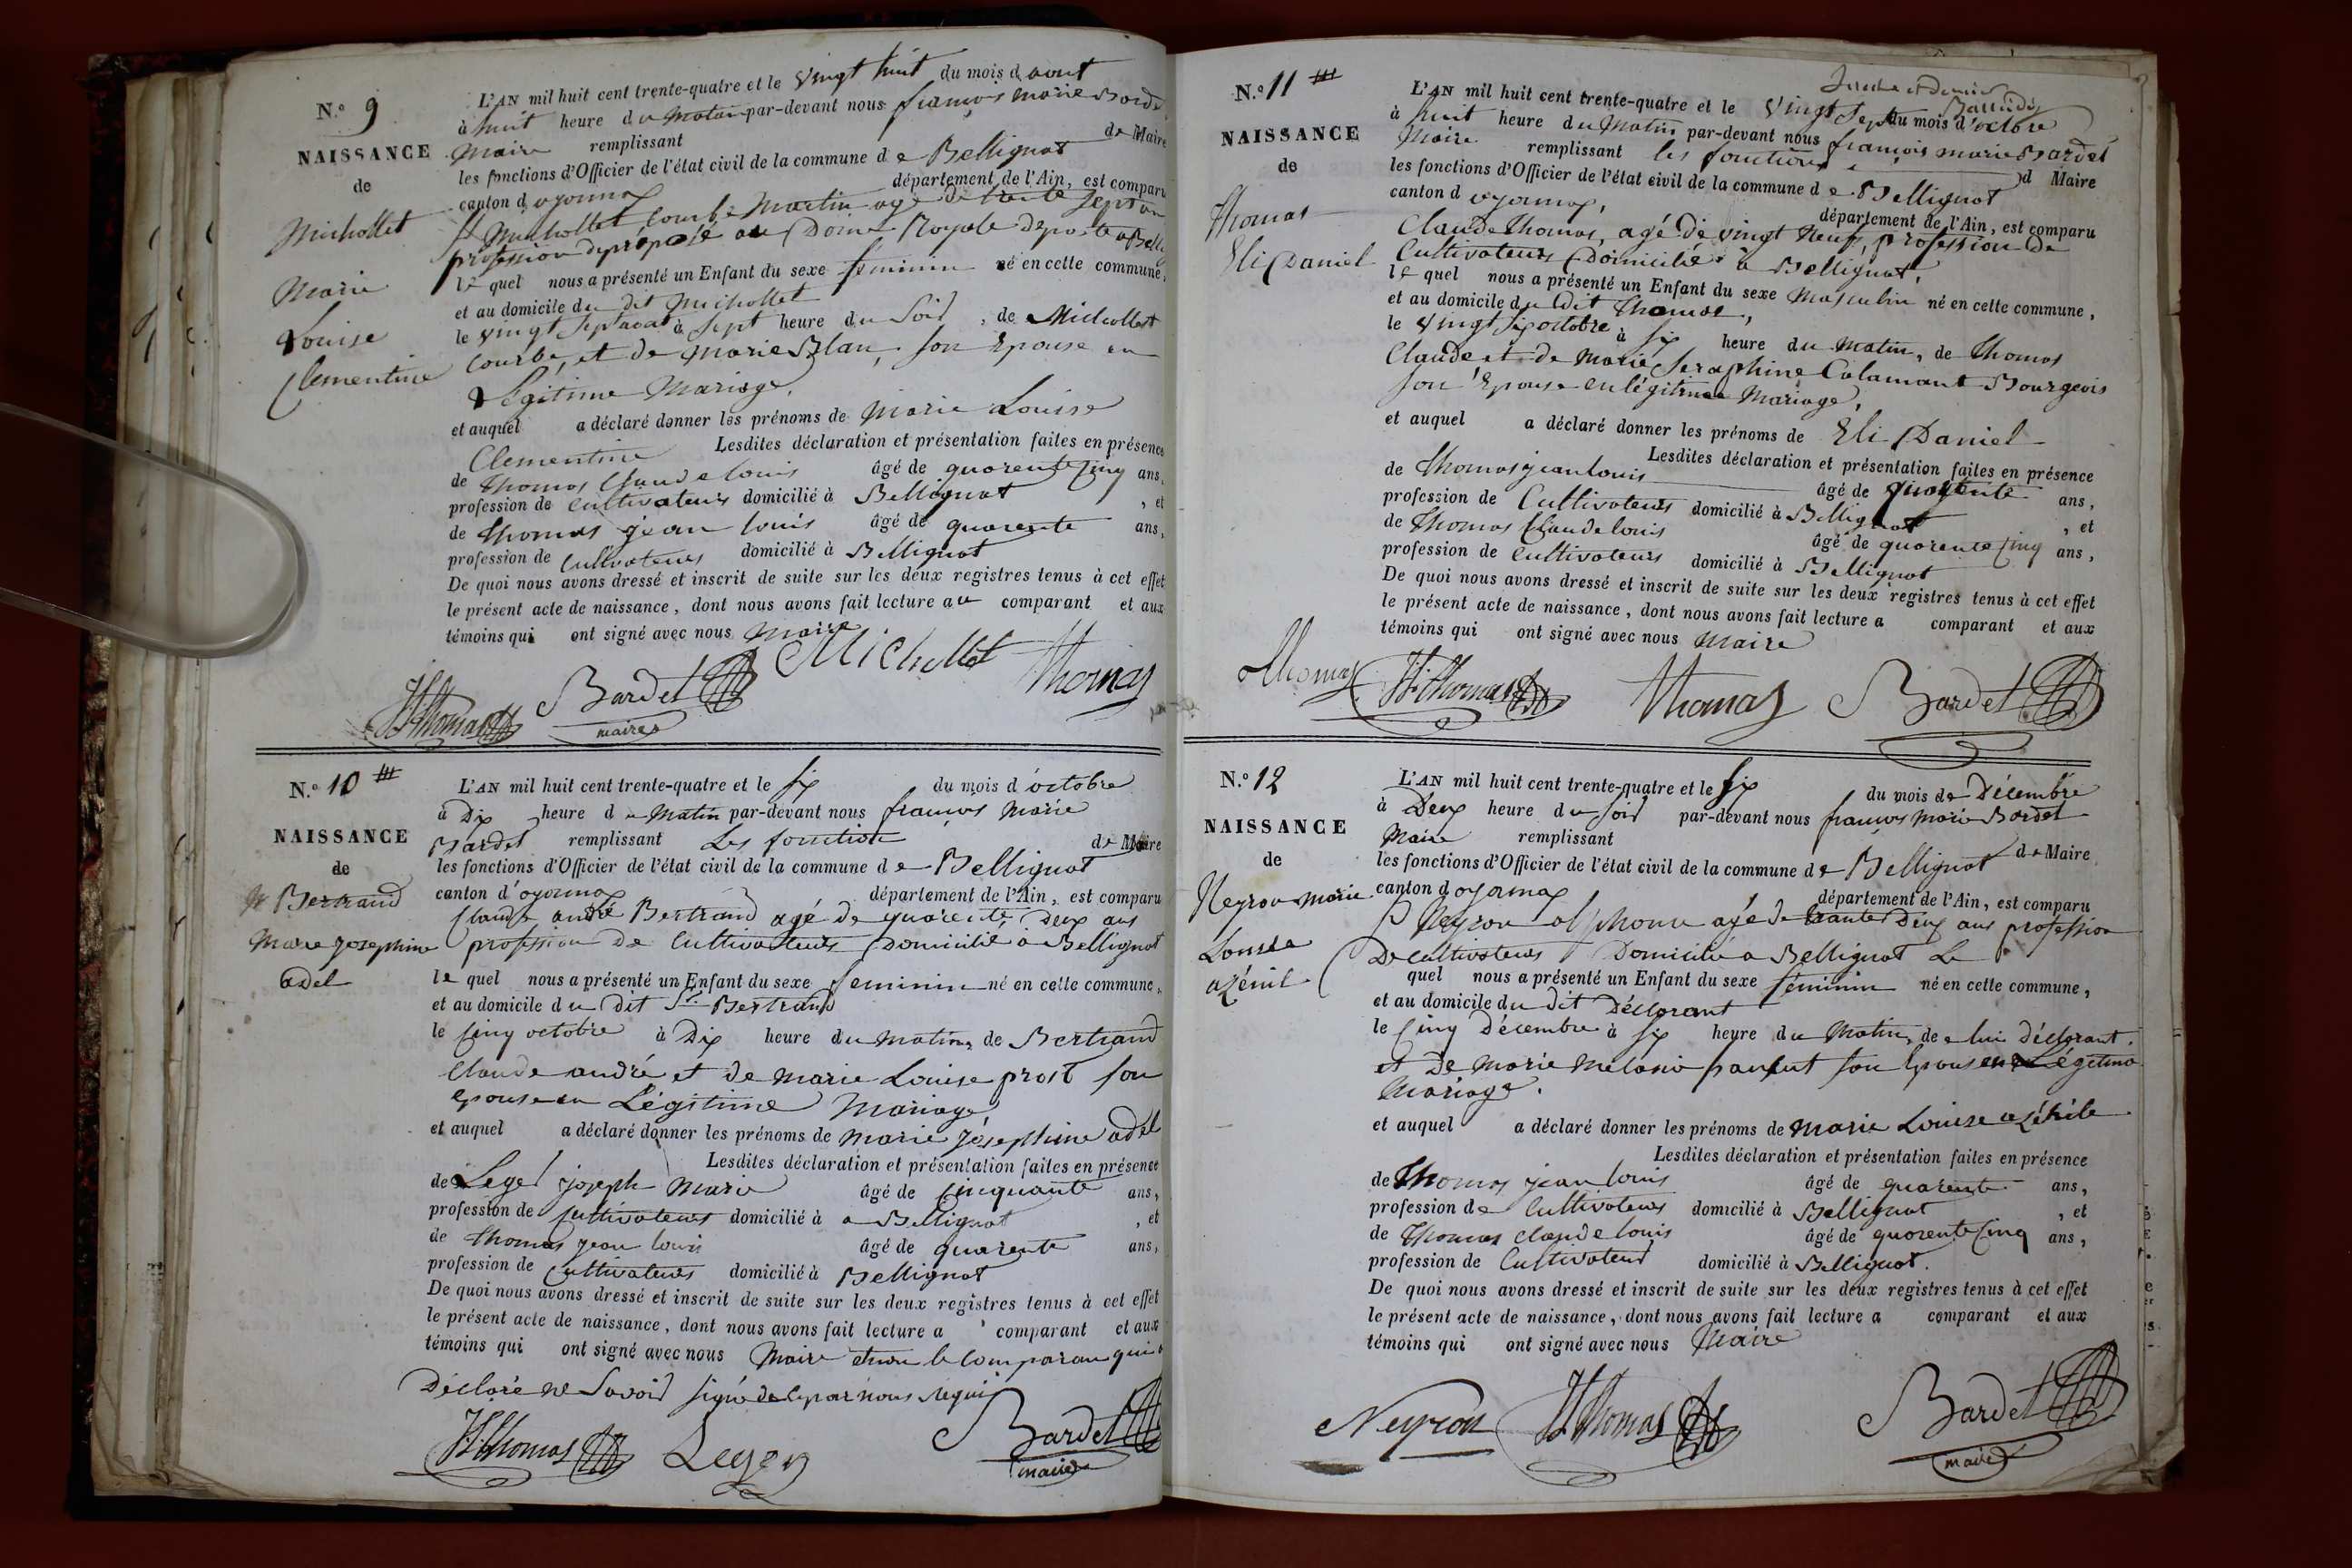 N.° 9
NAISSANCE
de
Michollet
Marie
Louise
Clementine
L'AN mil huit cent trente-quatre et le vingt huit du mois d aout
à huit heure du Matain par-devant nous françois marie Bardet
Maire remplissant de Maire
les fonctions d'Officier de l'état civil de la commune de Bellignat
canton d oyonnax département de l'Ain, est comparu
Michollet Courbe Martin agé de trente sept an
profession de préposé au Doine Royale deposte a Belli
le quel nous a présenté un Enfant du sexe feminin né en cette commune,
et au domicile du dit Michollet
le vingt sept aout à sept heure du Soir, de Michollet
Courbe, et de Marie Blan, son Epouse en
Légitime Mariage,
et auquel a déclaré donner les prénoms de Marie Louise
Clementine Lesdites déclaration et présentation faites en présence
de Thomas Claude louis âgé de quarente Cinq ans,
profession de Cultivateurs domicilié à Bellignat, et
de Thomas jean louis âgé de quarente ans,
profession de Cultivateurs domicilié à Bellignat
De quoi nous avons dressé et inscrit de suite sur les deux registres tenus à cet effet
le présent acte de naissance, dont nous avons fait lecture au comparant et aux
témoins qui ont signé avec nous Maire
Michollet Thomas
Thomas Bardet
maire
N.° 10
NAISSANCE
de
Bertrand
Marie Josephine
adel
L'AN mil huit cent trente-quatre et le six du mois d'octobre
à Dix heure du Matin par-devant nous françois Marie
Bardet remplissant Les fonction de Maire
les fonctions d'Officier de l'état civil de la commune de Bellignat
canton d'oyonnax département de l'Ain, est comparu
Claude andré Bertrand agé de quarente Deux ans
profession de Cultivateurs Domicilié à Bellignat
le quel nous a présenté un Enfant du sexe feminin né en cette commune,
et au domicile du dit Sr Bertrand
le Cinq octobre à Dix heure du matin, de Bertrand
Claude andré et de Marie Louise prost son
epouse en Légitime Mariage,
et auquel a déclaré donner les prénoms de Marie Joséphine adel
Lesdites déclaration et présentation faites en présence
de Leger joseph Marie âgé de Cinquante ans,
profession de Cultivateurs domicilié à a Bellignat, et
de Thomas jean louis âgé de quarente ans,
profession de Cultivateurs domicilié à Bellignat
De quoi nous avons dressé et inscrit de suite sur les deux registres tenus à cet effet
le présent acte de naissance, dont nous avons fait lecture a comparant et aux
témoins qui ont signé avec nous Maire le comparan qui a
Déclaré ne Savoir signé de ce par nous requi
Thomas Leger Bardet
maire
N.° 11
NAISSANCE
de
Thomas
Eli Daniel
L'AN mil huit cent trente-quatre et le vingt Sept du mois d'octbre
à huit heure du Matin par-devant nous françois marie Bardet
Maire remplissant les fonctions d Maire
les fonctions d'Officier de l'état civil de la commune de Bellignat
canton d oyonnax, département de l'Ain, est comparu
Claude Thomas, agé de vingt Neuf, profession de
Cultivateurs Domicilié à Bellignat,
le quel nous a présenté un Enfant du sexe Masculin né en cette commune,
et au domicile du dit Thomas,
le vingt six octobre à six heure du Matin, de Thomas
Claude et de Marie Seraphine Calamant Bourgeois
son Epouse en légitimea Mariage,
et auquel a déclaré donner les prénoms de Eli Daniel
Lesdites déclaration et présentation faites en présence
de Thomas jean louis âgé de quarente ans,
profession de Cultivateurs domicilié à Bellignat, et
de Thomas Claude louis âgé de quarente Cinq ans,
profession de Cultivateurs domicilié à Bellignat
De quoi nous avons dressé et inscrit de suite sur les deux registres tenus à cet effet
le présent acte de naissance, dont nous avons fait lecture a comparant et aux
témoins qui ont signé avec nous Maire
Thomas Thomas Thomas Bardet
N.° 12
NAISSANCE
de
Neyron Marie
Louise
azénil
L'AN mil huit cent trente-quatre et le six du mois de Décembre
à Deux heure du soir par-devant nous françois Marie Bardet
Maire remplissant de Maire
les fonctions d'Officier de l'état civil de la commune de Bellignat
canton d oyonnax département de l'Ain, est comparu
Neyron alphonse agé de trante Deux ans profession
De cultivateurs Domicilié a Bellignat Le
quel nous a présenté un Enfant du sexe féminin né en cette commune,
et au domicile du dit Déclarant
le Cinq Décembre à six heure du Matin, de lui déclarant,
et De Marie Melanie son Epouse en Légitime
Mariage.
et auquel a déclaré donner les prénoms de Marie Louise
Lesdites déclaration et présentation faites en présence
de Thomas jean louis âgé de quarente ans,
profession de Cultivateurs domicilié à Bellignat, et
de Thomas claude louis âgé de quarente Cinq ans,
profession de Cultivateurs domicilié à Bellignat.
De quoi nous avons dressé et inscrit de suite sur les deux registres tenus à cet effet
le présent acte de naissance, dont nous avons fait lecture a comparant et aux
témoins qui ont signé avec nous Maire
Neyron Thomas Bardet
maire